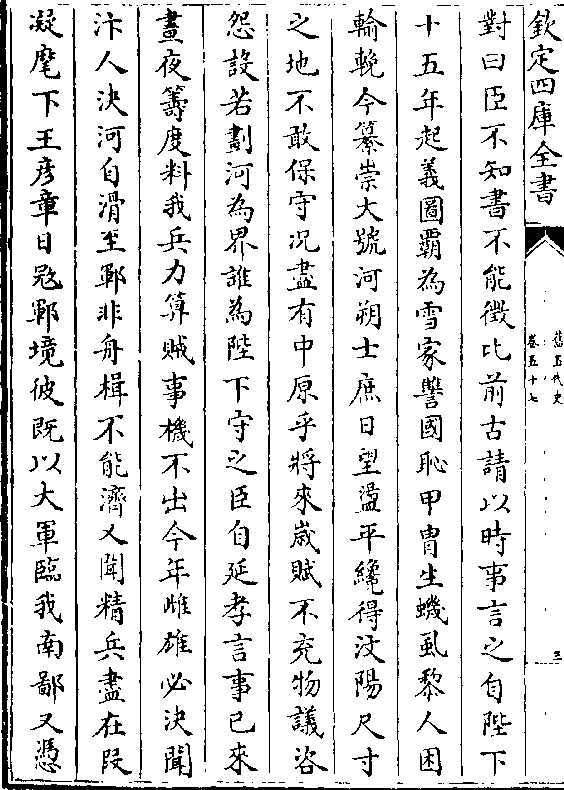 欽定四庫全書
舊五代史
卷五十七
三
對曰臣不知書不能徴比前古請以時事言之自陛下
十五年起義圖霸為雪家讐國恥甲胄生蟣虱黎人困
輸輓今纂崇大號河朔士庶日望盪平纔得汶陽尺寸
之地不敢保守况盡有中原乎將來歳賦不充物議咨
怨設若劃河為界誰為陛下守之臣自延孝言事已來
晝夜籌度料我兵力算賊事機不出今年雌雄必決聞
汴人決河自滑至鄆非舟楫不能濟又聞精兵盡在段
凝麾下王彦章日寇鄆境彼既以大軍臨我南鄙又憑